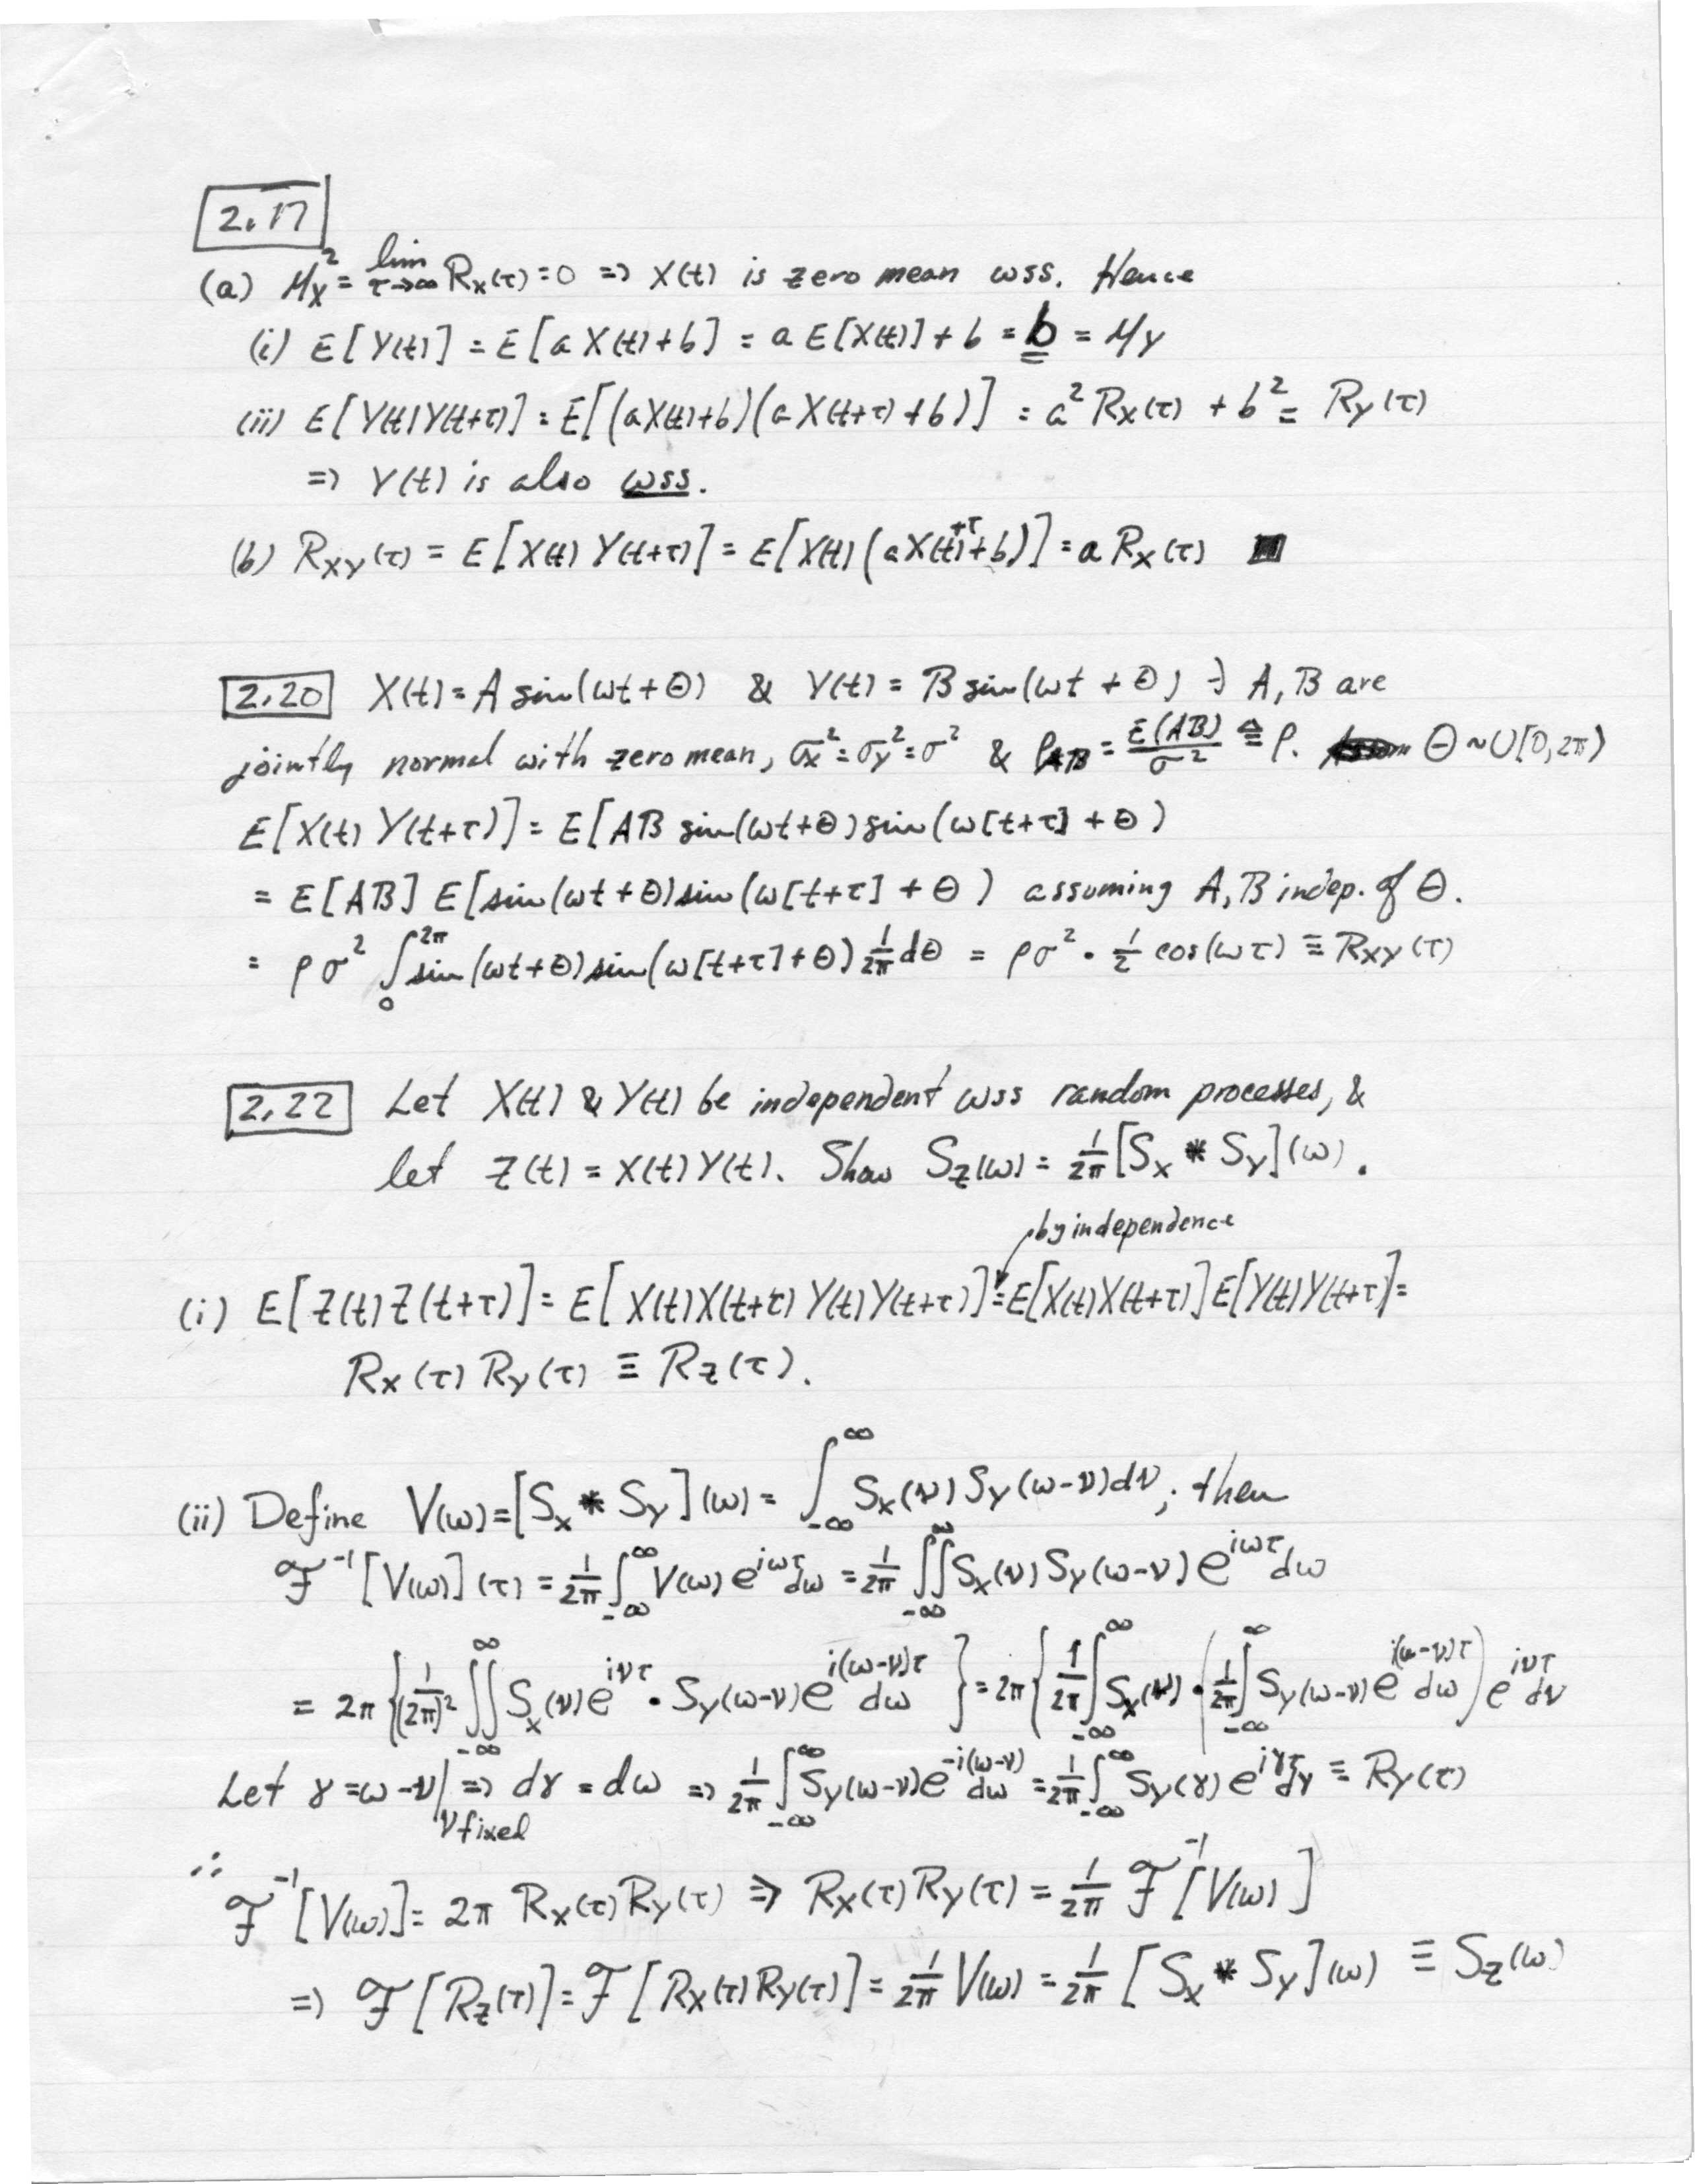 2.17
(a) μ_X² = lim_{τ→∞} R_X(τ) = 0 ⇒ X(t) is zero mean wss. Hence
(i) E[Y(t)] = E[a X(t) + b] = a E[X(t)] + b = b = μ_Y
(ii) E[Y(t)Y(t+τ)] = E[(aX(t)+b)(aX(t+τ)+b)] = a² R_X(τ) + b² = R_Y(τ)
⇒ Y(t) is also wss.
(b) R_XY(τ) = E[X(t) Y(t+τ)] = E[X(t)(aX(t+τ)+b)] = a R_X(τ) ■
2.20 X(t) = A sin(ωt+Θ) & Y(t) = B sin(ωt+Θ) ∋ A, B are
jointly normal with zero mean, σ_X² = σ_Y² = σ² & ρ_AB = E(AB)/σ² ≜ ρ. Θ ~ U[0, 2π)
E[X(t) Y(t+τ)] = E[AB sin(ωt+Θ) sin(ω[t+τ]+Θ)
= E[AB] E[sin(ωt+Θ) sin(ω[t+τ]+Θ) assuming A, B indep. of Θ.
= ρσ² ∫_0^{2π} sin(ωt+Θ) sin(ω[t+τ]+Θ) 1/2π dΘ = ρσ² · 1/2 cos(ωτ) ≡ R_XY(τ)
2.22 Let X(t) & Y(t) be independent wss random processes, &
let Z(t) = X(t)Y(t). Show S_Z(ω) = 1/2π [S_X * S_Y](ω).
by independence
(i) E[Z(t)Z(t+τ)] = E[X(t)X(t+τ) Y(t)Y(t+τ)] = E[X(t)X(t+τ)] E[Y(t)Y(t+τ)] =
R_X(τ) R_Y(τ) ≡ R_Z(τ).
(ii) Define V(ω) = [S_X * S_Y](ω) = ∫_{-∞}^{∞} S_X(ν) S_Y(ω-ν)dν; then
ℱ⁻¹[V(ω)](τ) = 1/2π ∫_{-∞}^{∞} V(ω) e^{iωτ} dω = 1/2π ∬_{-∞}^{∞} S_X(ν) S_Y(ω-ν) e^{iωτ} dω
= 2π { 1/(2π)² ∬_{-∞}^{∞} S_X(ν) e^{iντ} · S_Y(ω-ν) e^{i(ω-ν)τ} dω } = 2π { 1/2π ∫_{-∞}^{∞} S_X(ν) · ( 1/2π ∫_{-∞}^{∞} S_Y(ω-ν) e^{i(ω-ν)τ} dω ) e^{iντ} dν
Let γ = ω-ν |_{ν fixed} ⇒ dγ = dω ⇒ 1/2π ∫_{-∞}^{∞} S_Y(ω-ν) e^{-i(ω-ν)} dω = 1/2π ∫_{-∞}^{∞} S_Y(γ) e^{iγτ} dγ ≡ R_Y(τ)
∴
ℱ⁻¹[V(ω)] = 2π R_X(τ) R_Y(τ) ⇒ R_X(τ) R_Y(τ) = 1/2π ℱ⁻¹[V(ω)]
⇒ ℱ[R_Z(τ)] = ℱ[R_X(τ) R_Y(τ)] = 1/2π V(ω) = 1/2π [S_X * S_Y](ω) ≡ S_Z(ω)